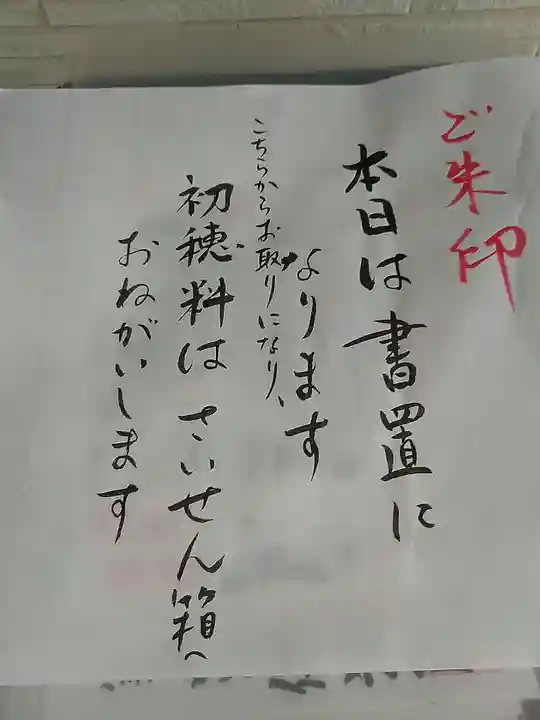 ご朱印
本日は書置に
なります
こちらからお取りになり、
初穂料はさいせん箱へ
おねがいします